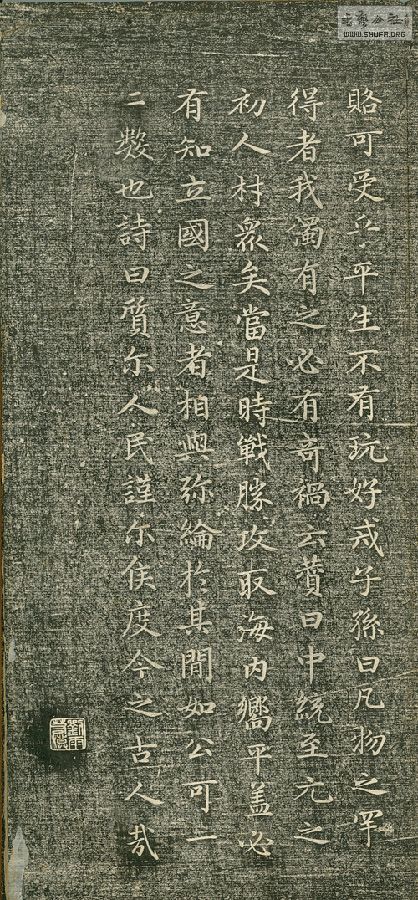 賂可受乎平生不有玩好戒子孫曰凡物之罕
得者我獨有之必有奇禍云贊曰中統至元之
初人材衆矣當是時戰勝攻取海内嚮平蓋必
有知立國之意者相與弥綸於其間如公可一
二數也詩曰質尔人民謹尔侯度今之古人哉
WWW.SHUFA.ORG